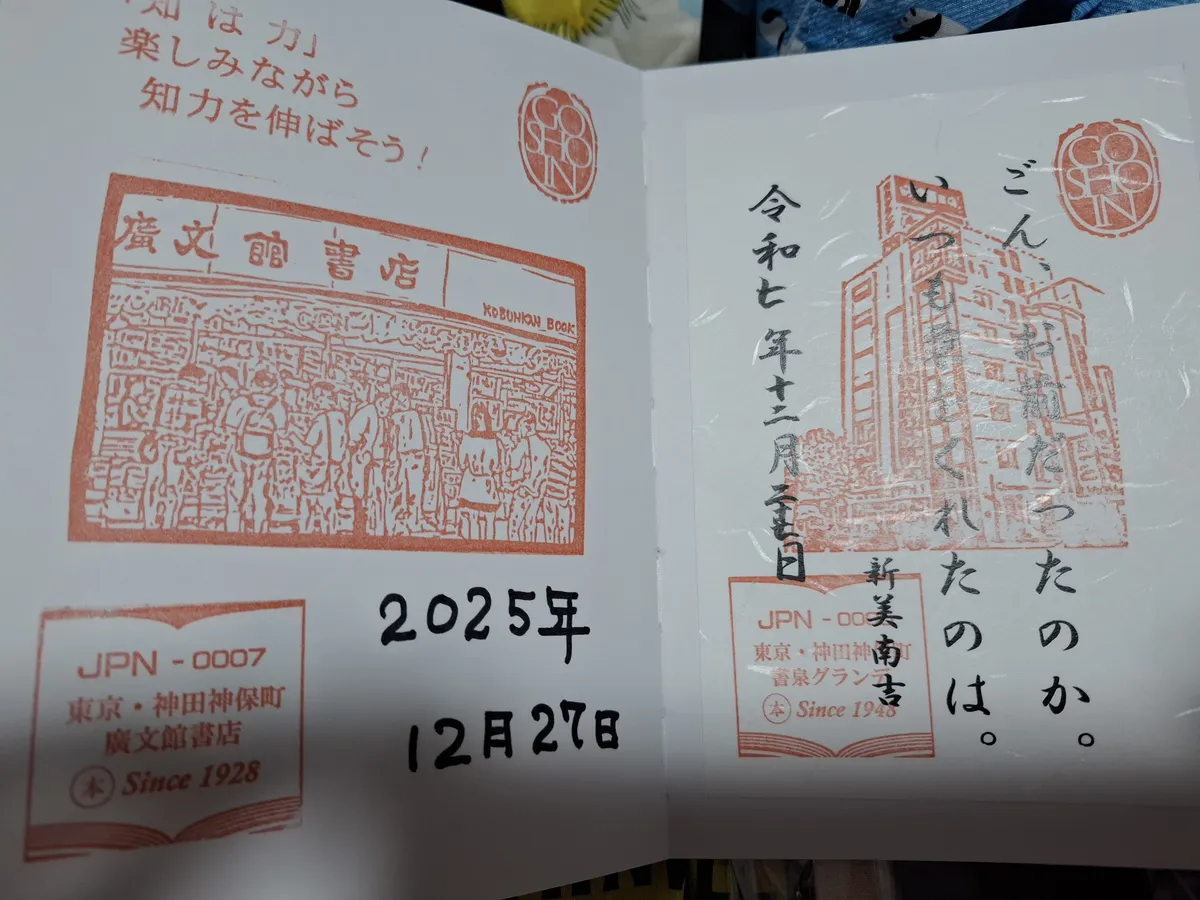 「知は力」
楽しみながら
知力を伸ばそう!
GO
SHO
IN
廣文館書店
KOBUNKAN BOOK
JPN - 0007
東京・神田神保町
廣文館書店
本 Since 1928
2025年
12月27日
GO
SHO
IN
ごん、お前だったのか。
いつも栗をくれたのは。
新美南吉
令和七年十二月二十七日
JPN -
東京・神田神保町
書泉グランデ
本 Since 1948